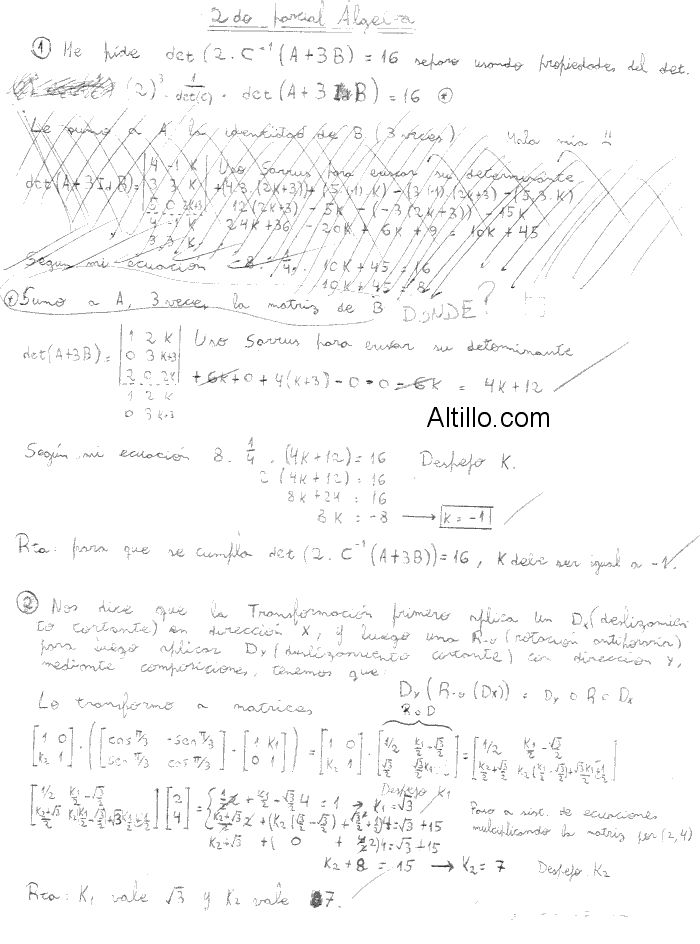 2do parcial Algebra
① Me pide det (2. C⁻¹ (A+3B) = 16 separo usando propiedades del det.
(2)³ 1/det(C) . det (A+3 B) = 16 (*)
Le sumo a A la identidad de B (3 veces) Mala mia
det(A+3IdB) = |4 -1 K| Uso Sarrus para buscar su determinante
|3 3 K| +(4.3.(2K+3)) + (5.(-1).K) - (3.(-1).(2K+3) - (5.3.K)
|5 0 2K+3| 12(2K+3) - 5K - (-3(2K+3)) - 15K
4 -1 K 24K+36 - 20K + 6K + 9 = 10K + 45
3 3 K
Segun mi ecuación 8. 1/4. 10K + 45 = 16
10K + 45 = 8
(*) Sumo a A, 3 veces la matriz de B DONDE?
det(A+3B) = |1 2 K| Uso Sarrus para buscar su determinante
|0 3 K+3|
|2 0 2K| + 6K + 0 + 4(K+3) - 0 - 0 - 6K = 4K + 12
1 2 K
0 3 K+3
Altillo.com
Según mi ecuación 8 . 1/4 . (4K+12) = 16 Despejo K.
2 (4K+12) = 16
8K+24 = 16
8K = -8 → K = -1
Rta: para que se cumpla det (2. C⁻¹ (A+3B)) = 16, K debe ser igual a -1.
② Nos dice que la Transformación primero aplica un Dx (deslizamien
to cortante) en dirección X, y luego una R-o (rotación antihoraria)
para luego aplicar Dy (deslizamiento cortante) con dirección Y,
mediante composiciones, tenemos que:
Dy (R-o (Dx)) = Dy o R o Dx
Lo transformo a matrices R o D
[1 0] . ([cos π/3 -sen π/3] . [1 K1]) = [1 0] . [1/2 K1/2 - √3/2] = [1/2 K1/2 - √3/2]
[K2 1] [sen π/3 cos π/3] [0 1] [K2 1]
Despejo K1
[2] = 1 → K1 = √3 Paso a sist. de ecuaciones
[4] = √3 + 15 multiplicando la matriz por (2,4)
K2+√3 + ( 0 + 4/2 2)4 = √3 + 15
K2 + 8 = 15 → K2 = 7 Despejo K2
Rta: K1 vale √3 y K2 vale 7.